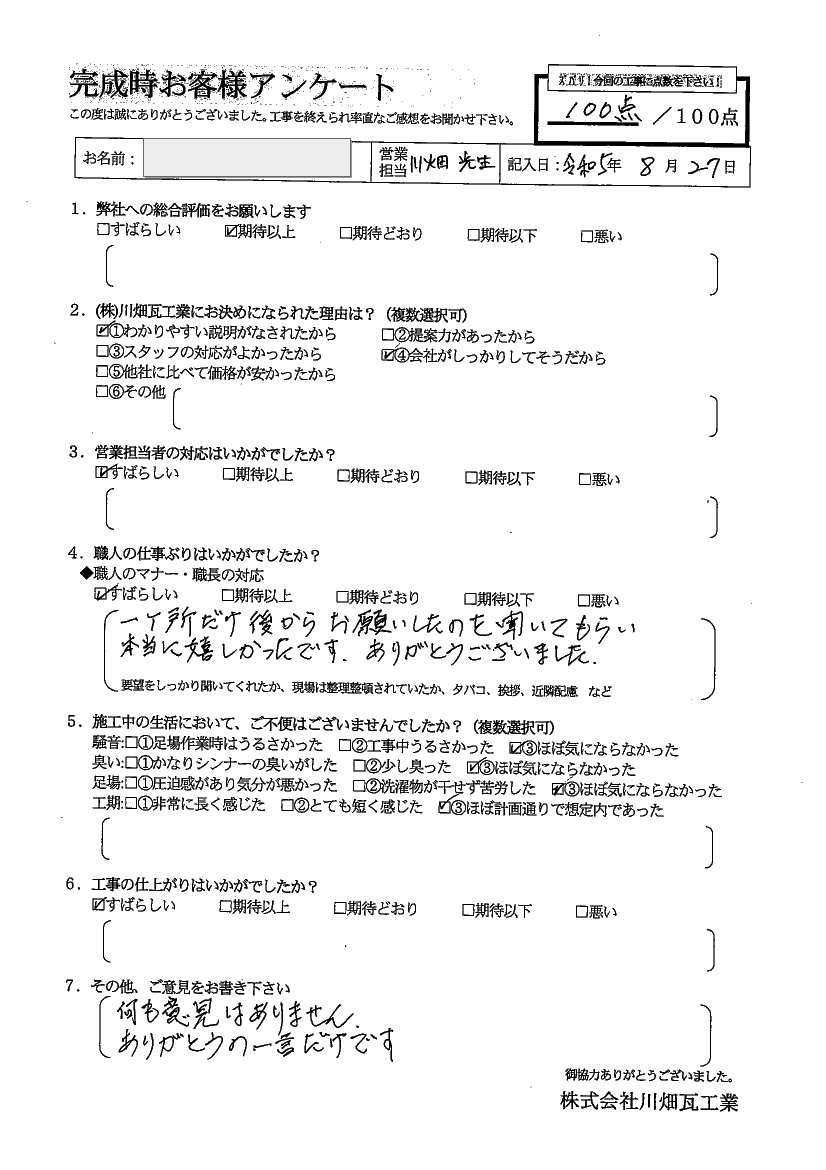 完成時お客様アンケート
ズバリ！今回の工事に点数を下さい！
この度は誠にありがとうございました。工事を終えられ率直なご感想をお聞かせ下さい。
100点 /100点
お名前： 営業担当 川畑 先生 記入日：令和5年 8月 27日
1．弊社への総合評価をお願いします
□すばらしい ☑期待以上 □期待どおり □期待以下 □悪い
2．(株)川畑瓦工業にお決めになられた理由は？（複数選択可）
☑①わかりやすい説明がなされたから □②提案力があったから
□③スタッフの対応がよかったから ☑④会社がしっかりしてそうだから
□⑤他社に比べて価格が安かったから
□⑥その他
3．営業担当者の対応はいかがでしたか？
☑すばらしい □期待以上 □期待どおり □期待以下 □悪い
4．職人の仕事ぶりはいかがでしたか？
◆職人のマナー・職長の対応
☑すばらしい □期待以上 □期待どおり □期待以下 □悪い
一ヶ所だけ後からお願いしたのを聞いてもらい
本当に嬉しかったです。ありがとうございました。
要望をしっかり聞いてくれたか、現場は整理整頓されていたか、タバコ、挨拶、近隣配慮 など
5．施工中の生活において、ご不便はございませんでしたか？（複数選択可）
騒音:□①足場作業時はうるさかった □②工事中うるさかった ☑③ほぼ気にならなかった
臭い:□①かなりシンナーの臭いがした □②少し臭った ☑③ほぼ気にならなかった
足場:□①圧迫感があり気分が悪かった □②洗濯物が干せず苦労した ☑③ほぼ気にならなかった
工期:□①非常に長く感じた □②とても短く感じた ☑③ほぼ計画通りで想定内であった
6．工事の仕上がりはいかがでしたか？
☑すばらしい □期待以上 □期待どおり □期待以下 □悪い
7．その他、ご意見をお書き下さい
何も意見はありません。
ありがとうの一言だけです
御協力ありがとうございました。
株式会社川畑瓦工業